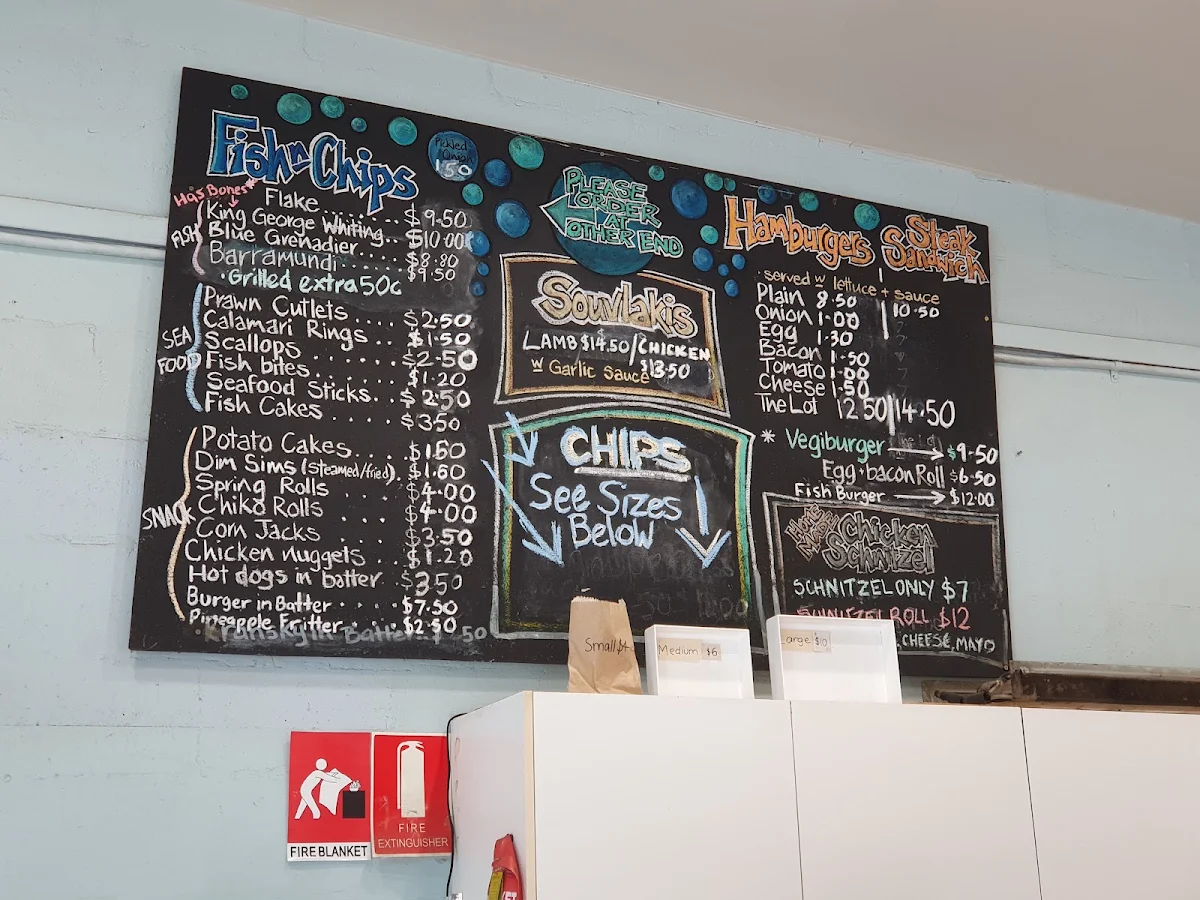 Fish n Chips
Pickled
Onion
1.50
Has Bones*
FISH
Flake ..... $9.50
King George Whiting.. $10.00
Blue Grenadier.... $8.80
Barramundi..... $9.50
• Grilled extra 50c
SEA
FOOD
Prawn Cutlets .... $2.50
Calamari Rings .... $1.50
Scallops ...... $2.50
Fish bites...... $1.20
Seafood Sticks... $2.50
Fish Cakes .... $3.50
SNACK
Potato Cakes.... $1.60
Dim Sims (steamed/fried). $1.60
Spring Rolls .... $4.00
Chiko Rolls .... $4.00
Corn Jacks .... $3.50
Chicken nuggets .... $1.20
Hot dogs in batter .. $3.50
Burger in Batter .... $7.50
Pineapple Fritter .... $2.50
Kransky in Batter
50
PLEASE
ORDER
AT
OTHER END
Souvlakis
LAMB $14.50/CHICKEN
$13.50
w Garlic Sauce
CHIPS
See Sizes
Below
Small $4
Medium $6
Large $10
Hamburgers
Steak
Sandwich
• served w lettuce + sauce
Plain 8.50
10.50
Onion 1.00
Egg 1.30
Bacon 1.50
Tomato 1.00
Cheese 1.50
The Lot 12.50 14.50
* Vegiburger → $9.50
Egg + bacon Roll $6.50
Fish Burger → $12.00
Home
Made
Chicken
Schnitzel
SCHNITZEL ONLY $7
SCHNITZEL ROLL $12
CHEESE, MAYO
FIRE BLANKET
FIRE
EXTINGUISHER